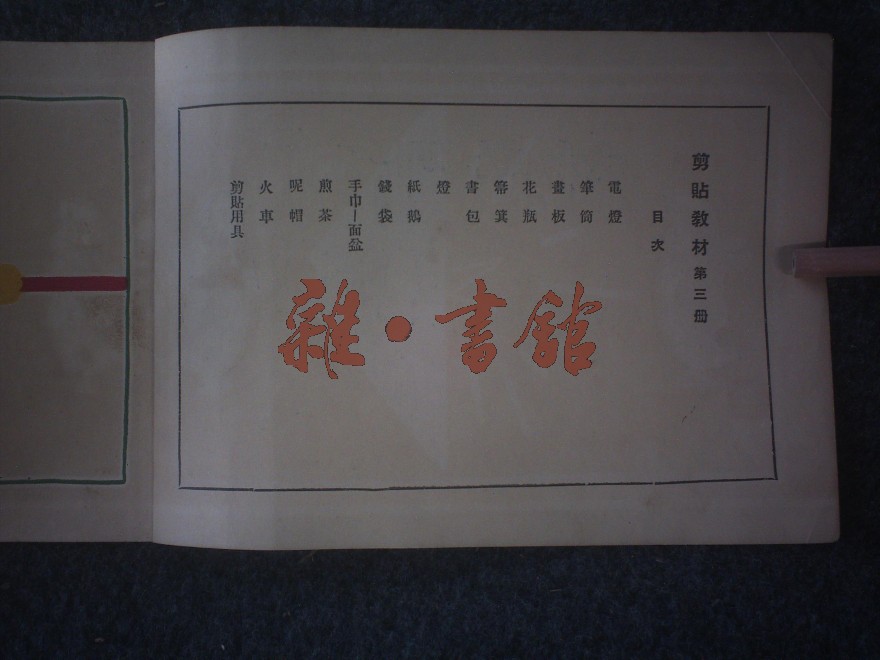 剪貼教材第三册
目次
電燈
筆筒
畫板
花瓶
箒箕
書包
燈
紙鷂
錢袋
手巾—面盆
煎茶
呢帽
火車
剪貼用具
雜·書館